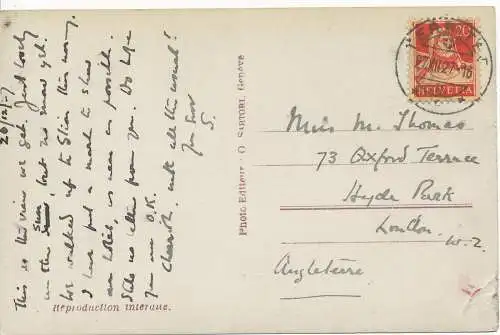 26/12/27
This is the view we get. Just lovely
in the sun, but no snow yet.
We walked up to Sion this morning.
I have put a mark to show
our hotel, as near as possible.
Still no letter from you. Do hope
you are O.K.
Cheerio! with all the usual!
Your ever
S.
Photo Editeur : O. SARTORI, Genève
Reproduction interdite.
20
HELVETIA
27.XII.27.-16
Miss M. Thomas
73 Oxford Terrace
Hyde Park
London.
W.2.
Angleterre